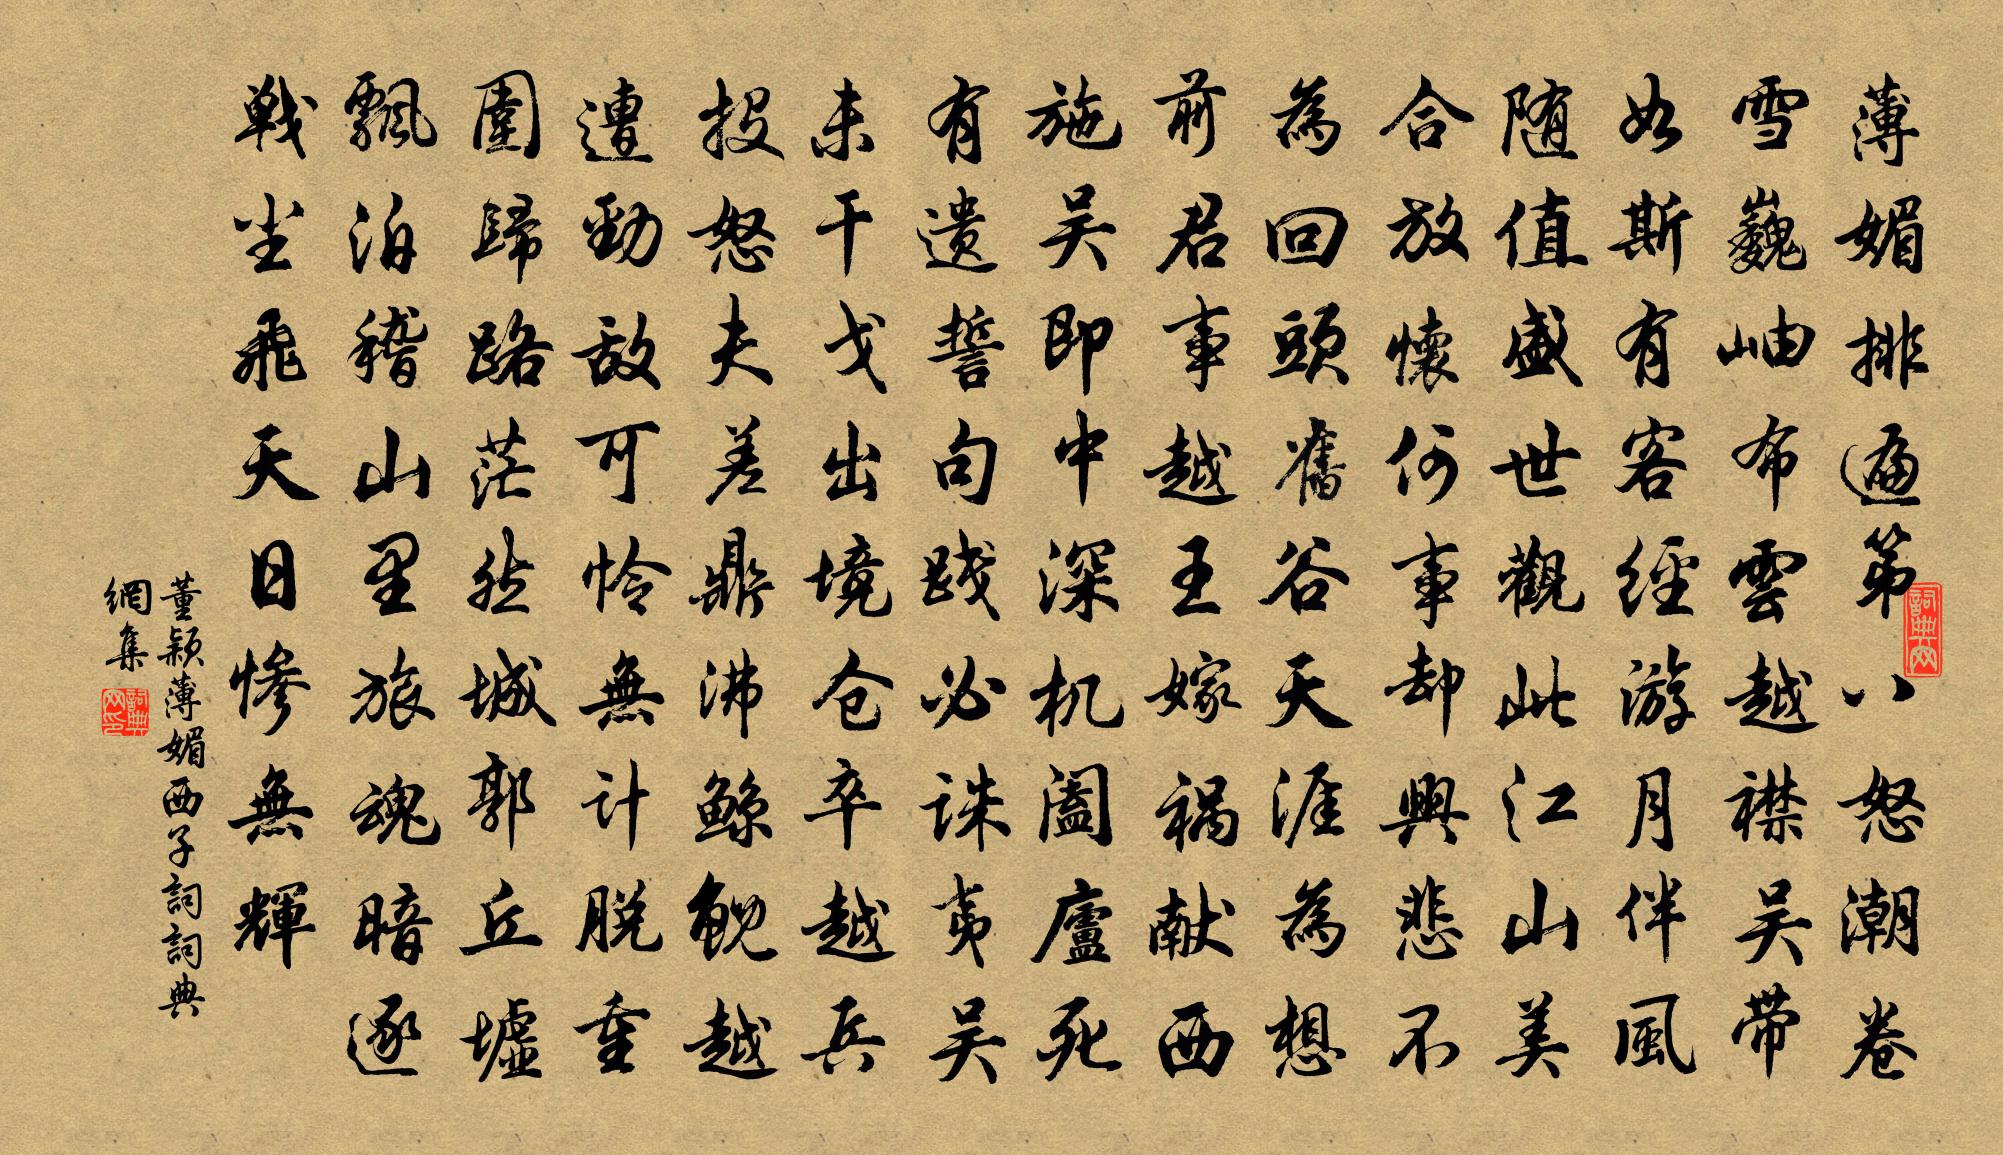 薄媚排遍第八怒潮卷
雪巍岫布雲越襟吴帶
如斯有客經游月伴風
随值盛世觀此江山美
合放懷何事却興悲不
為回頭舊谷天涯為想
前君事越王嫁祸献西
施吴即中深机闔廬死
有遗誓句践必诛夷吴
未干戈出境仓卒越兵
投怒夫差鼎沸鲸鲵越
遭勁敌可怜無计脱重
圍歸路茫然城郭丘墟
飄泊稽山里旅魂暗逐
戦尘飛天日惨無輝
董颖薄媚西子詞詞典
網集
詞典网
詞典网印